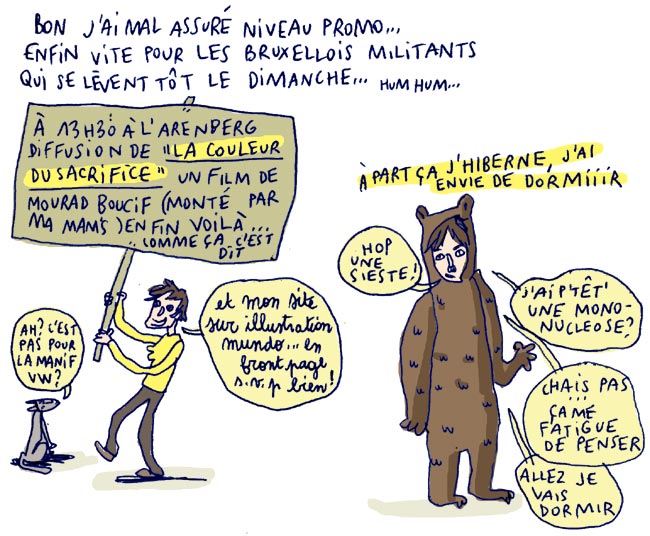 BON J'AI MAL ASSURÉ NIVEAU PROMO...
ENFIN VITE POUR LES BRUXELLOIS MILITANTS
QUI SE LÈVENT TÔT LE DIMANCHE... HUM HUM...
À 13H30 À L'ARENBERG
DIFFUSION DE "LA COULEUR
DU SACRIFICE" UN FILM DE
MOURAD BOUCIF (MONTÉ PAR
MA MAMS) ENFIN VOILÀ...
.. COMME ÇA C'EST
DIT
AH? C'EST
PAS POUR
LA MANIF
VW?
et mon site
sur illustration
mundo... en
front page
s.v.p bien!
À PART ÇA J'HIBERNE, J'AI
ENVIE DE DORMIIIR
HOP
UNE
SIESTE!
J'AI P'TÊT'
UNE MONO-
NUCLEOSE?
CHAIS PAS
...
ÇA ME
FATIGUE
DE PENSER
ALLEZ JE
VAIS
DORMIR